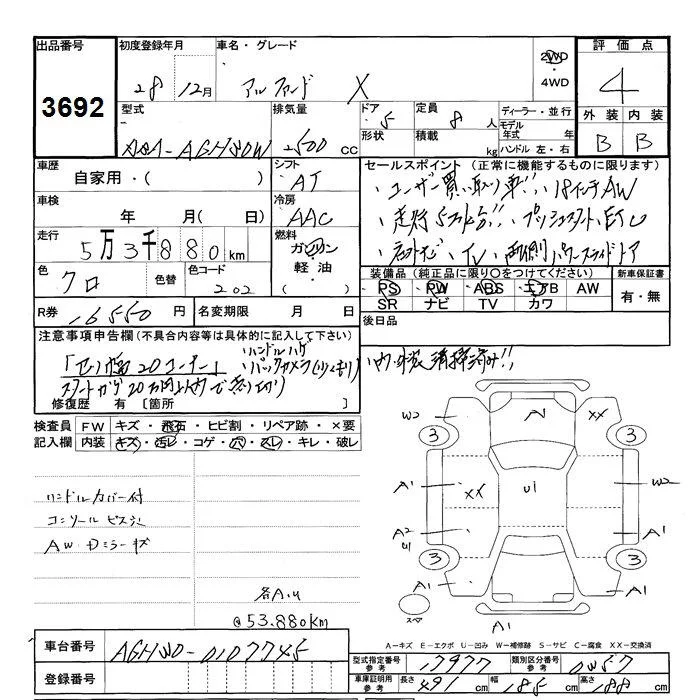 出品番号 3692
初度登録年月 28年12月
車名・グレード アルファード X
2WD・4WD
評価点 4
外装 B 内装 B
型式 AGH30W
排気量 2500cc
ドア 5
形状
定員 8人
積載 kg
ディーラー・並行
モデル年式 年式
ハンドル 左・右
車歴 自家用・( )
シフト AT
車検 年 月( 日)
冷房 AAC
走行 5万3千880km
燃料 ガソリン・軽油・
色 クロ 色替
色コード 202
R券 16550円
名変期限 月 日
セールスポイント (正常に機能するものに限ります)
・ユーザー買い取り車!!・18インチAW
・走行5万km台!!・プッシュスタート、ETC
・TV・両側パワースライドドア
装備品(純正品に限り○をつけてください)
PS PW ABS エアB AW
SR ナビ TV カワ
新車保証書 有・無
後日品
注意事項申告欄(不具合内容等は具体的に記入して下さい)
・ハンドルハゲ
「セリ幅20コーナー」・バックカメラ(少くもり)・内・外装清掃済み!!
スタートから20万円以内で売り切り
修復歴 有 [箇所 ]
検査員記入欄
FW キズ・飛石・ヒビ割・リペア跡・×要
内装 キズ・汚レ・コゲ・穴・スレ・キレ・破レ
ハンドルカバー付
コンソールビス穴
AW・Dミラーキズ
各A.U
@53.880km
W2 A1 XX
3 3
A1 XX U1 W2
A2 U1 A1
3 3
A1 A1
スペア A1
A-キズ E-エクボ U-凹み W-補修跡 S-サビ C-腐食 XX-交換済
車台番号 AGH30-0107745
登録番号
型式指定番号 参考 17977
類別区分番号 参考 0057
車庫証明用 参考 長さ 491cm 幅 185cm 高さ 188cm